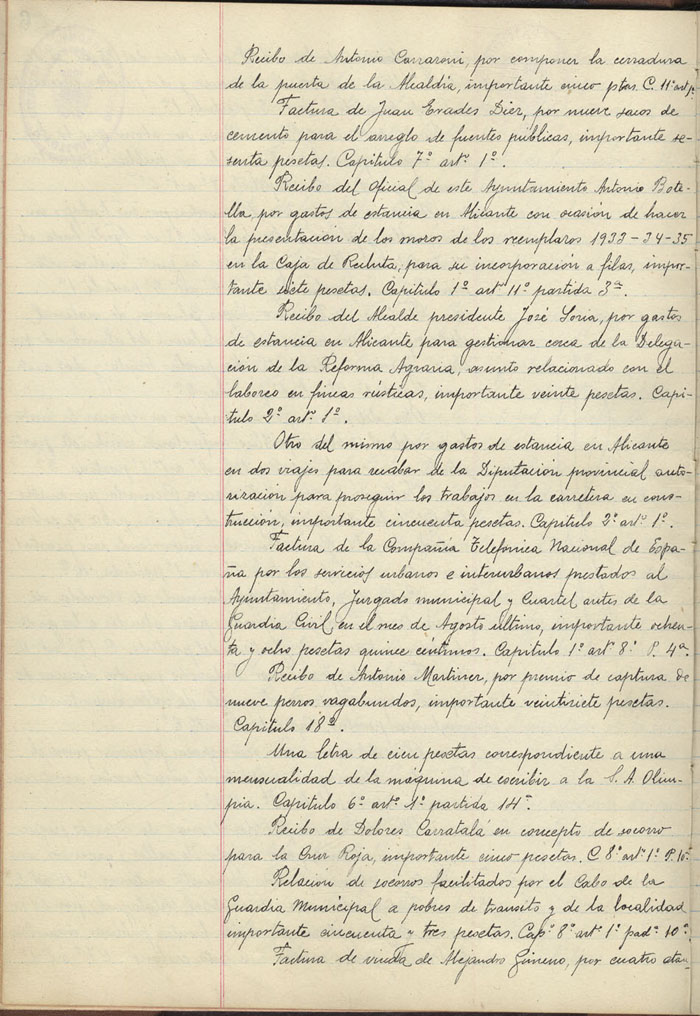 Recibo de Antonio Carraroni, por componer la cerradura
de la puerta de la Alcaldía, importante cinco ptas. C. 11º artº
Factura de Juan Erades Diez, por nueve sacos de
cemento para el arreglo de fuentes públicas, importante se-
senta pesetas. Capitulo 7º artº 1º.
Recibo del Oficial de este Ayuntamiento Antonio Bote-
lla, por gastos de estancia en Alicante con ocasión de hacer
la presentación de los mozos de los reemplazos 1933-34-35
en la Caja de Recluta, para su incorporación a filas, impor-
tante siete pesetas. Capitulo 1º artº 11º partida 3ª.
Recibo del Alcalde presidente José Soria, por gastos
de estancia en Alicante para gestionar cerca de la Delega-
ción de la Reforma Agraria, asunto relacionado con el
laboreo en fincas rústicas, importante veinte pesetas. Capi-
tulo 2º artº 1º.
Otro del mismo por gastos de estancia en Alicante
en dos viajes para recabar de la Diputación provincial auto-
rización para proseguir los trabajos en la carretera en cons-
trucción, importante cincuenta pesetas. Capitulo 2º artº 1º.
Factura de la Compañia Telefónica Nacional de Espa-
ña por los servicios urbanos e interurbanos prestados al
Ayuntamiento, Juzgado municipal y Cuartel antes de la
Guardia Civil, en el mes de Agosto último, importante ochen-
ta y ocho pesetas quince céntimos. Capitulo 1º artº 8º P. 4ª.
Recibo de Antonio Martinez, por premio de captura de
nueve perros vagabundos, importante veintisiete pesetas.
Capitulo 18º.
Una letra de cien pesetas correspondiente a una
mensualidad de la máquina de escribir a la S. A. Olim-
pia. Capitulo 6º artº 1º partida 14ª.
Recibo de Dolores Carratalá en concepto de socorro
para la Cruz Roja, importante cinco pesetas. C 8º artº 1º P. 10ª
Relación de socorros facilitados por el Cabo de la
Guardia Municipal a pobres de transito y de la localidad
importante cincuenta y tres pesetas. Capº 8º artº 1º padª 10ª.
Factura de viuda de Alejandro Gimeno, por cuatro ataú